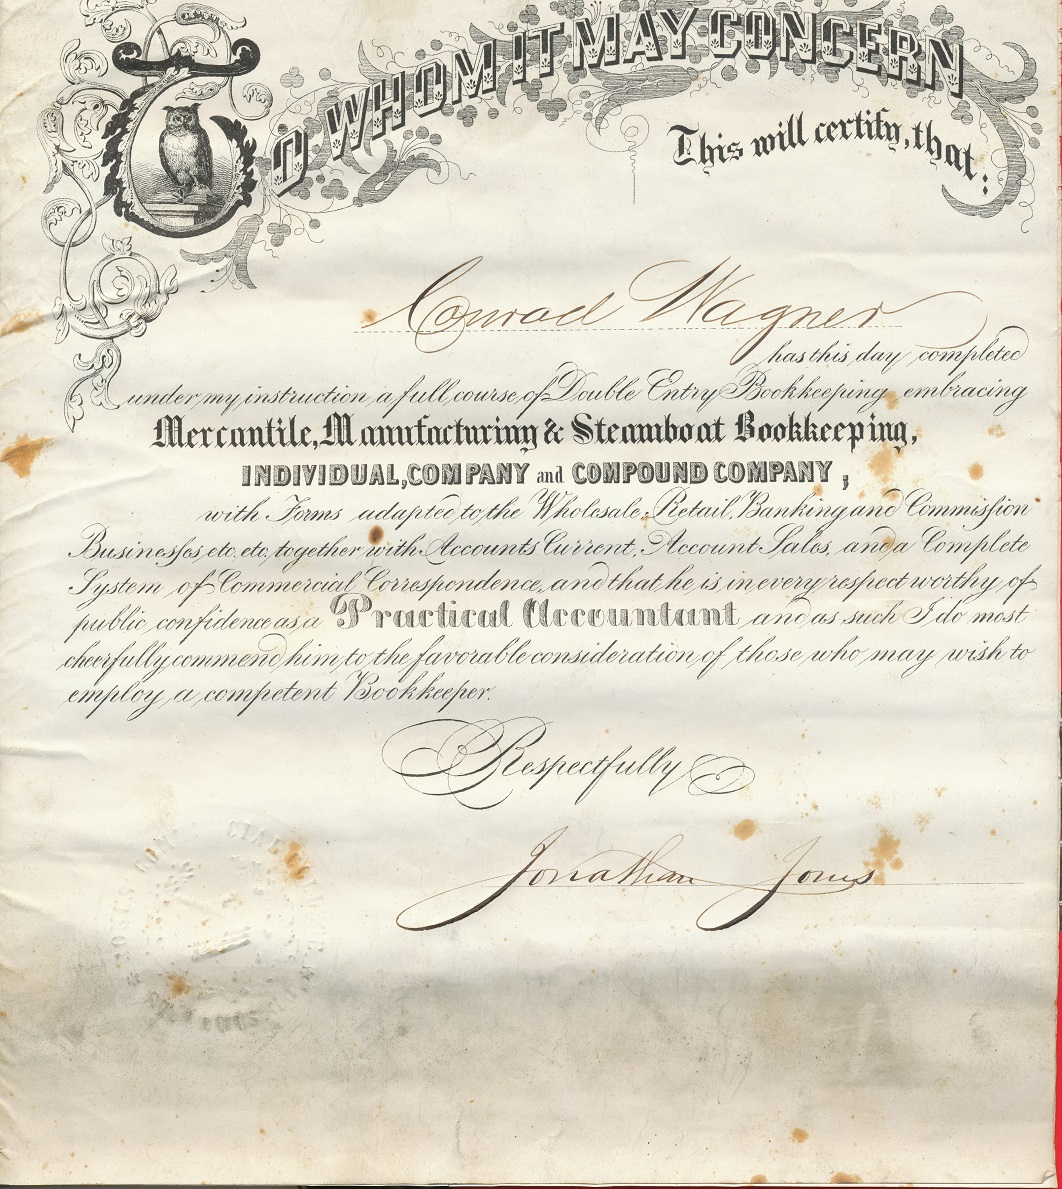 TO WHOM IT MAY CONCERN
This will certify, that:
Conrad Wagner
has this day completed
under my instruction a full course of Double Entry Bookkeeping embracing
Mercantile, Manufacturing & Steamboat Bookkeeping,
INDIVIDUAL, COMPANY and COMPOUND COMPANY;
with Forms adapted to the Wholesale, Retail, Banking and Commission
Businesses, etc. etc, together with Accounts Current, Account Sales, and a Complete
System of Commercial Correspondence, and that he is in every respect worthy of
public confidence as a Practical Accountant and as such I do most
cheerfully commend him, to the favorable consideration of those who may wish to
employ a competent Bookkeeper.
Respectfully
Jonathan Jones